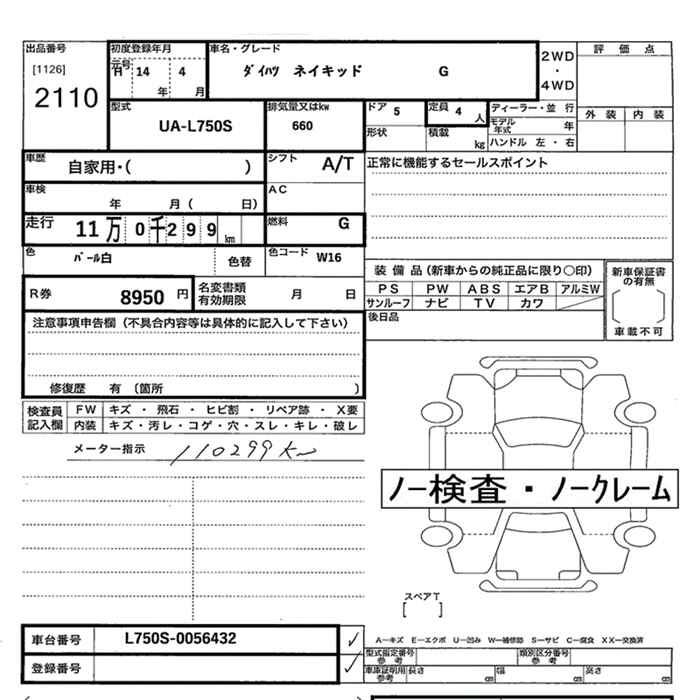 出品番号 初度登録年月 車名・グレード 2WD 評価点
[1126] 元号 H 14 4 ダイハツ ネイキッド G ・
2110 年 月 4WD
型式 排気量又はkw ドア 5 定員 4 人 ディーラー・並 行 外装 内装
UA-L750S 660 形状 積載 kg モデル年式 年
ハンドル 左・右
車歴 自家用・( ) シフト A/T 正常に機能するセールスポイント
車検 年 月( 日) AC
走行 11万0千299km 燃料 G
色 パール白 色替 色コード W16
装備品(新車からの純正品に限り〇印) 新車保証書の有無
PS PW ABS エアB アルミW [ ]
サンルーフ ナビ TV カワ 車載不可
R券 8950円 名変書類有効期限 月 日 後日品
注意事項申告欄(不具合内容等は具体的に記入して下さい)
修復歴 有(箇所 )
検査員 FW キズ・飛石・ヒビ割・リペア跡・X要
記入欄 内装 キズ・汚レ・コゲ・穴・スレ・キレ・破レ
メーター指示 110299km
ノー検査・ノークレーム
スペアT
[ ]
車台番号 L750S-0056432 ✓
登録番号 ✓
A-キズ E-エクボ U-凹み W-補修跡 S-サビ C-腐食 XX-交換済
型式指定番号 参考 類別区分番号 参考
車庫証明用 参考 長さ cm 幅 cm 高さ cm